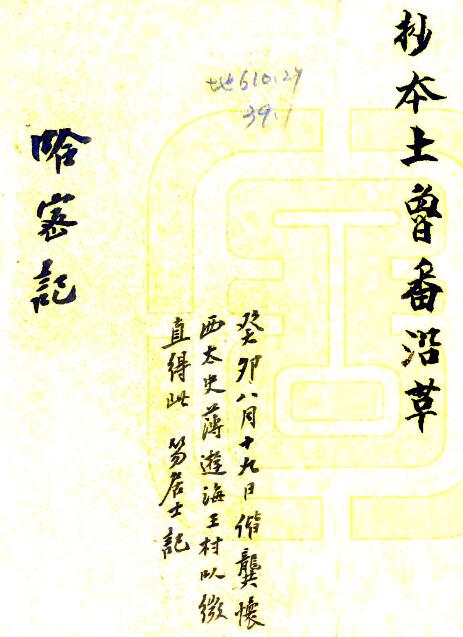 抄本土魯番沿草
地610.27
39.1
癸卯八月十九日偕龔懷
西太史薄遊海王村以微
直得此 笏居士記
哈密記